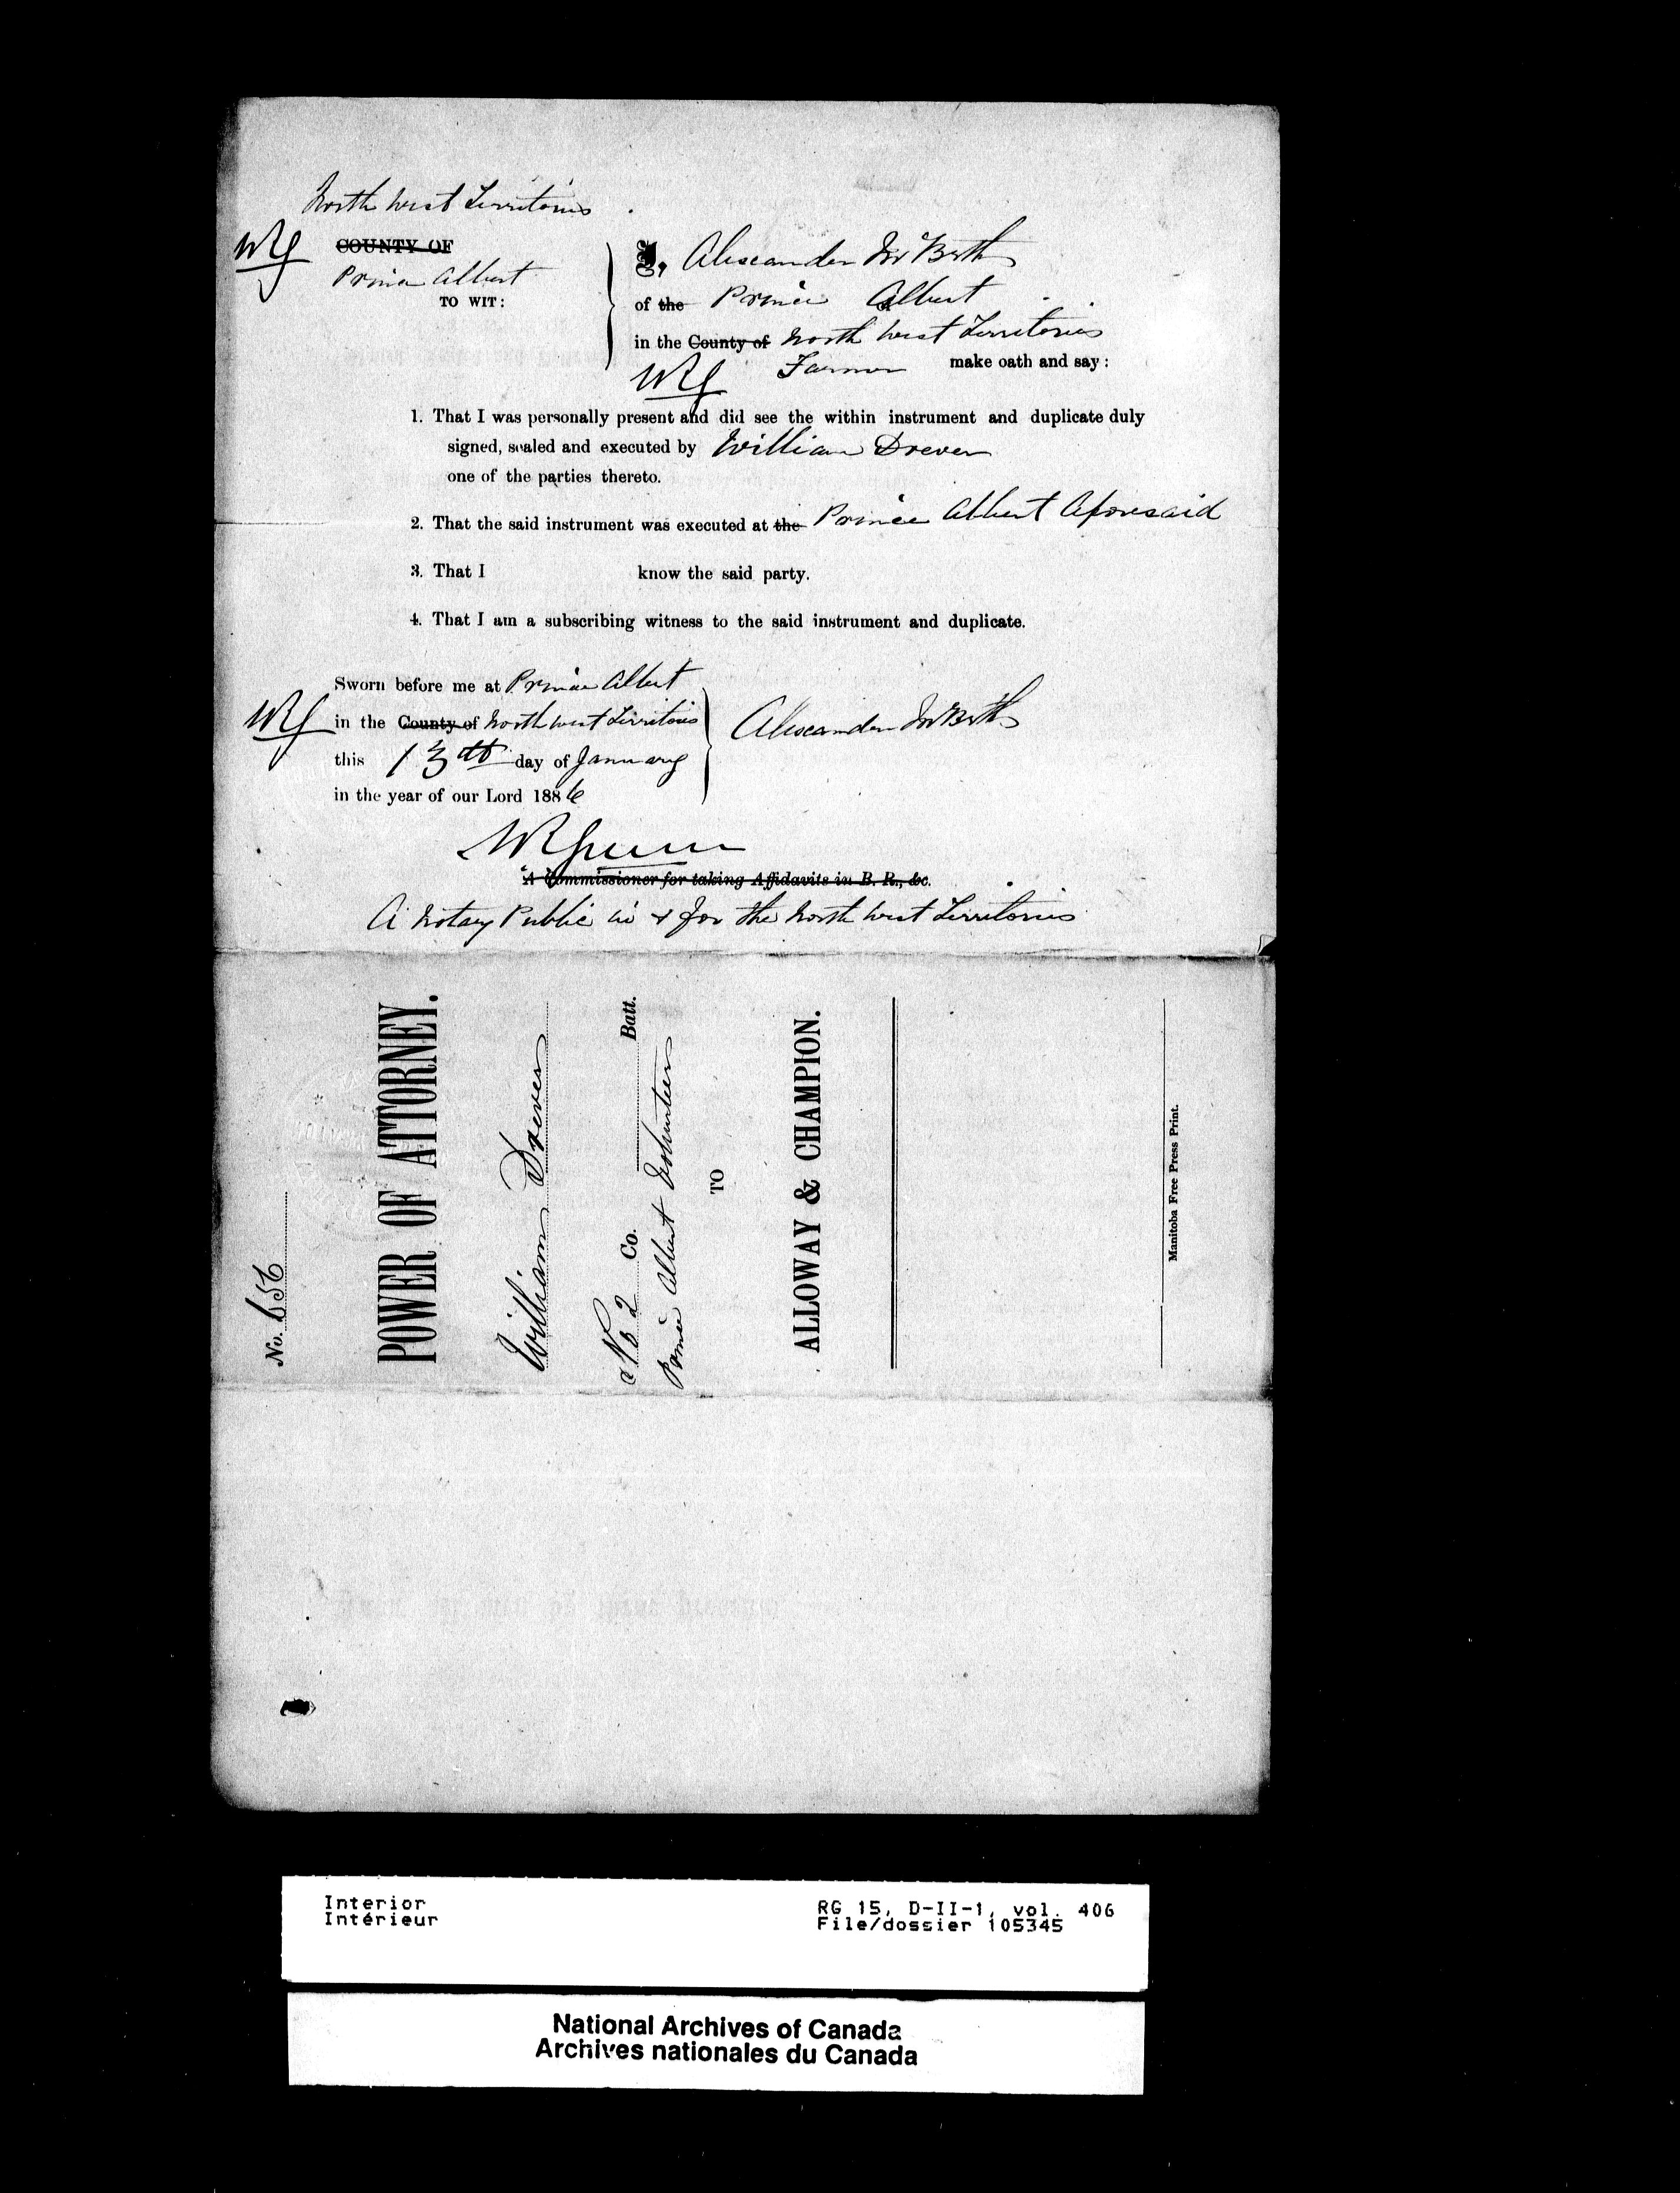 North West Territories
WRG
COUNTY OF
Prince Albert
TO WIT:
I, Alexander McBeth
of the Prince Albert
in the County of North West Territories
WRG Farmer make oath and say:
1. That I was personally present and did see the within instrument and duplicate duly
signed, sealed and executed by William Drever
one of the parties thereto.
2. That the said instrument was executed at the Prince Albert Aforesaid
3. That I know the said party.
4. That I am a subscribing witness to the said instrument and duplicate.
Sworn before me at Prince Albert
WRG in the County of North West Territories
this 13th day of January
in the year of our Lord 1886
Alexander McBeth
WRGunn
A Commissioner for taking Affidavits in B. R., &c.
A Notary Public in & for the North West Territories
No. 656
POWER OF ATTORNEY.
William Drever
No 2 Co. Batt.
Prince Albert Volunteers
TO
ALLOWAY & CHAMPION.
Manitoba Free Press Print.
Interior
Intérieur
RG 15, D-II-1, vol. 406
File/dossier 105345
National Archives of Canada
Archives nationales du Canada